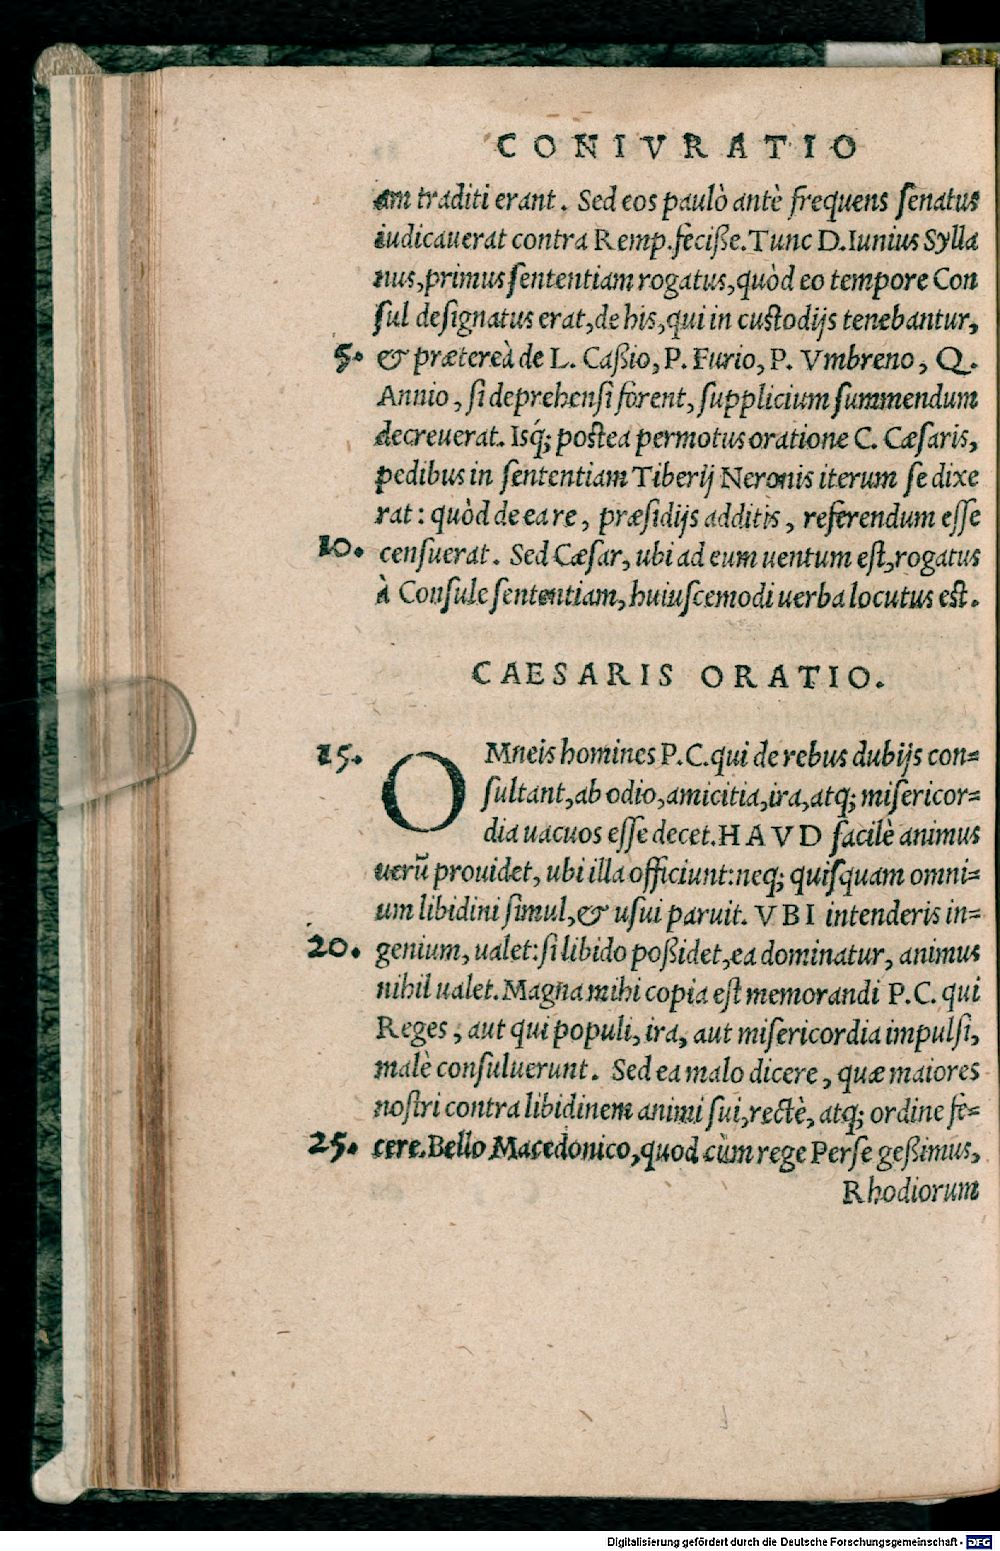 CONIVRATIO
am traditi erant. Sed eos paulò antè frequens senatus
iudicauerat contra Remp. fecisse. Tunc D. Iunius Sylla
nus, primus sententiam rogatus, quòd eo tempore Con
sul designatus erat, de his, qui in custodijs tenebantur,
5. & prætereà de L. Caßio, P. Furio, P. Vmbreno, Q.
Annio, si deprehensi forent, supplicium summendum
decreuerat. Isq́; postea permotus oratione C. Cæsaris,
pedibus in sententiam Tiberij Neronis iterum se dixe
rat: quòd de ea re, præsidijs additis, referendum esse
10. censuerat. Sed Cæsar, ubi ad eum uentum est, rogatus
à Consule sententiam, huiuscemodi uerba locutus est.
CAESARIS ORATIO.
15. OMneis homines P.C. qui de rebus dubijs con=
sultant, ab odio, amicitia, ira, atq; misericor=
dia uacuos esse decet. HAVD facilè animus
uerũ prouidet, ubi illa officiunt: neq; quisquam omni=
um libidini simul, & usui paruit. VBI intenderis in=
20. genium, ualet: si libido poßidet, ea dominatur, animus
nihil ualet. Magna mihi copia est memorandi P.C. qui
Reges, aut qui populi, ira, aut misericordia impulsi,
malè consuluerunt. Sed ea malo dicere, quæ maiores
nostri contra libidinem animi sui, rectè, atq; ordine fe=
25. cere. Bello Macedonico, quod cùm rege Perse geßimus,
Rhodiorum
Digitalisierung gefördert durch die Deutsche Forschungsgemeinschaft - DFG